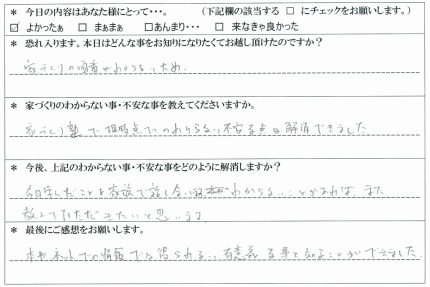 * 今日の内容はあなた様にとって・・・。 (下記欄の該当する □ にチェックをお願いします。)
☑ よかったぁ □ まぁまぁ □ あんまり・・・ □ 来なきゃ良かった
* 恐れ入ります。本日はどんな事をお知りになりたくてお越し頂けたのですか？
家づくりの順番がわからないため
* 家づくりのわからない事・不安な事を教えてくださいますか。
家づくり塾で現時点でのわからない不安な点は解消できました
* 今後、上記のわからない事・不安な事をどのように解消しますか？
今日学んだことを家族で話し合い わからないことがあれば、また
教えていただきたいと思います。
* 最後にご感想をお願いします。
本やネットでの情報では得られない、有意義な事を知ることができました